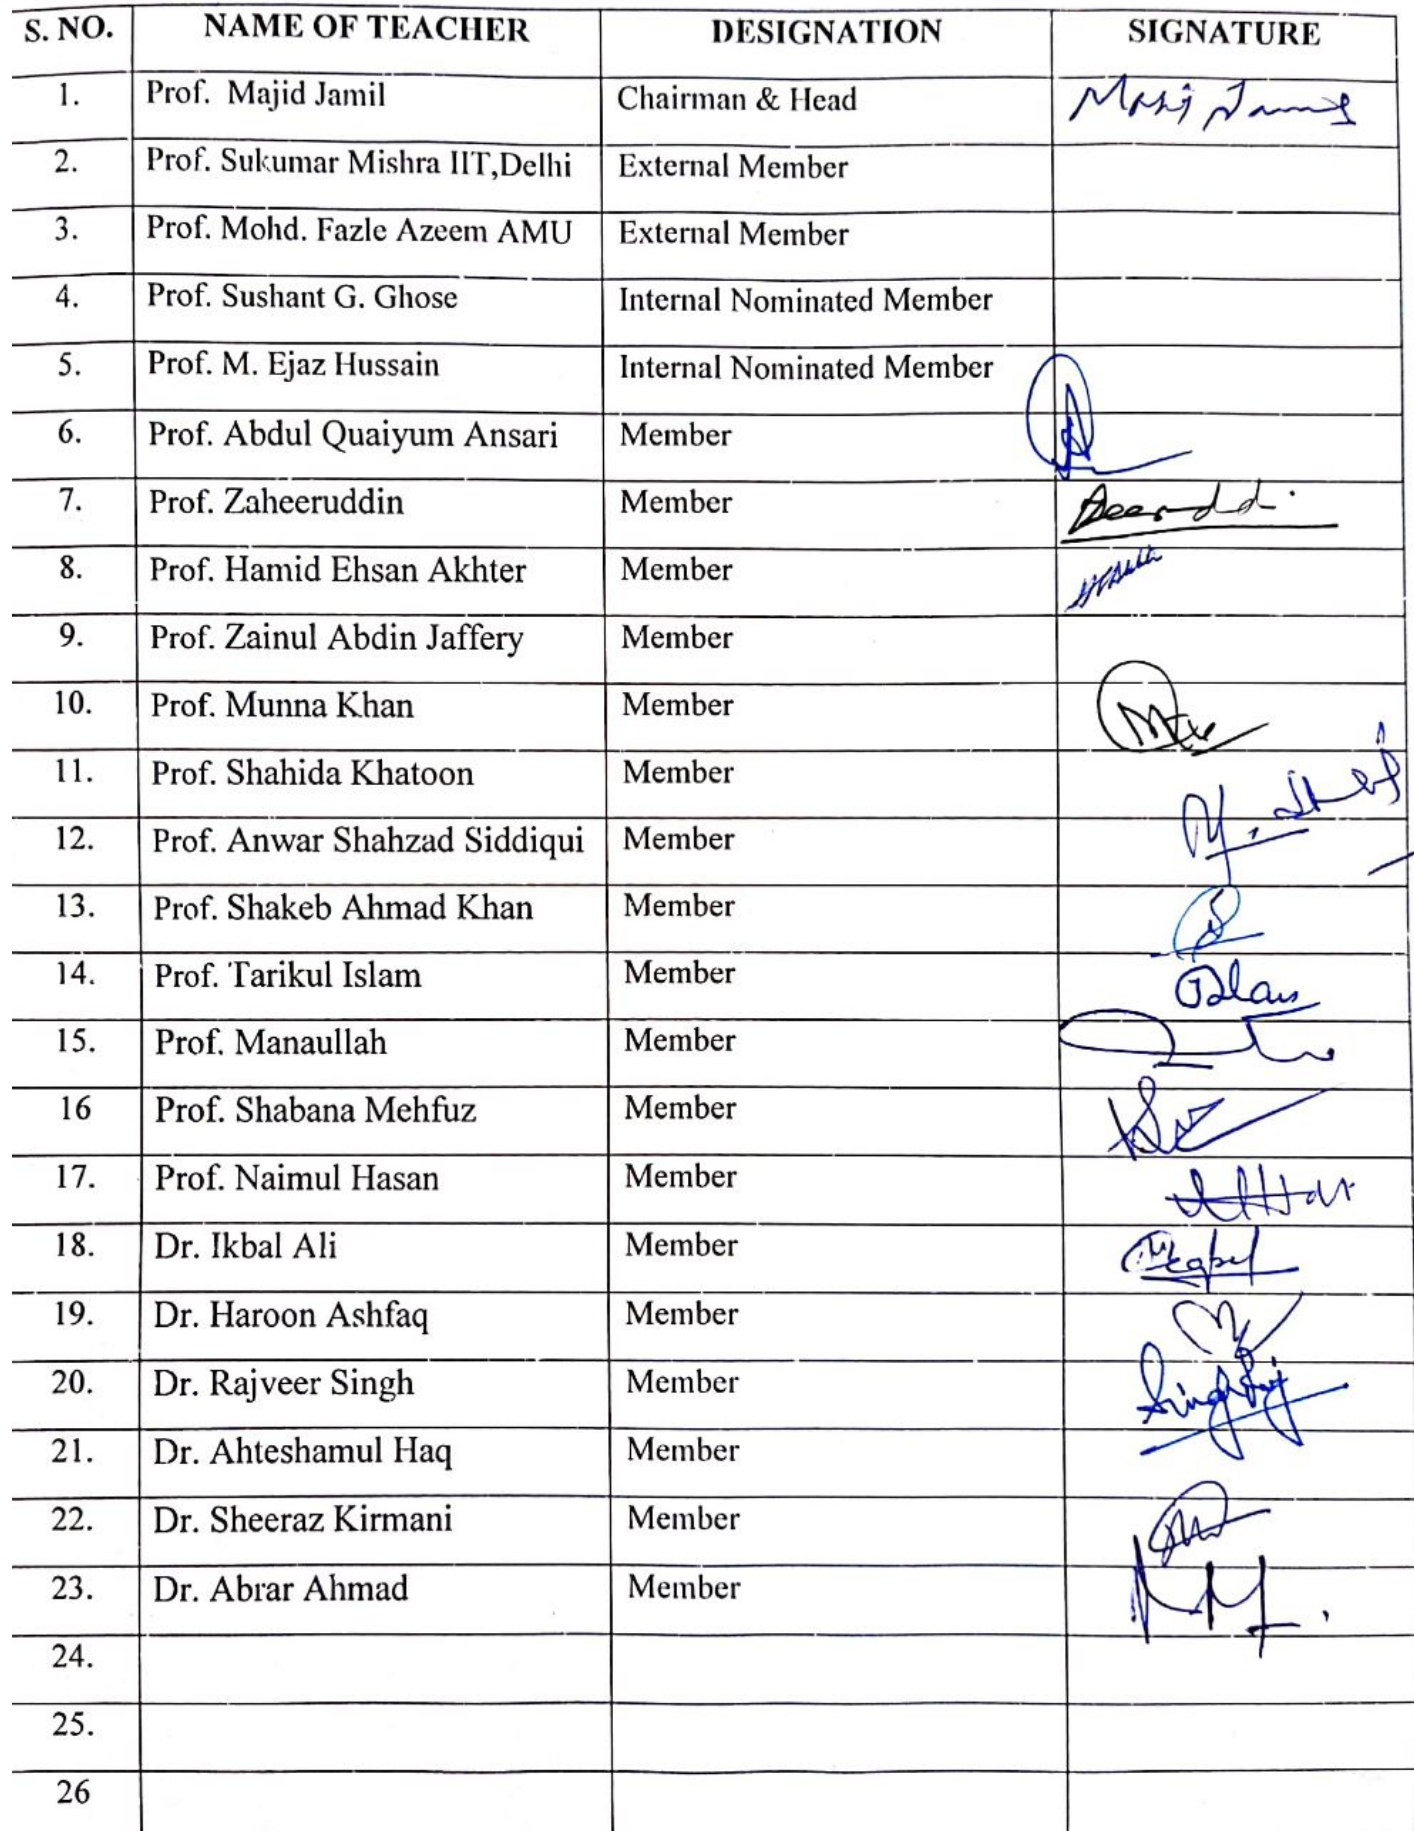 S. NO. NAME OF TEACHER DESIGNATION SIGNATURE
1. Prof. Majid Jamil Chairman & Head
2. Prof. Sukumar Mishra IIT,Delhi External Member
3. Prof. Mohd. Fazle Azeem AMU External Member
4. Prof. Sushant G. Ghose Internal Nominated Member
5. Prof. M. Ejaz Hussain Internal Nominated Member
6. Prof. Abdul Quaiyum Ansari Member
7. Prof. Zaheeruddin Member
8. Prof. Hamid Ehsan Akhter Member
9. Prof. Zainul Abdin Jaffery Member
10. Prof. Munna Khan Member
11. Prof. Shahida Khatoon Member
12. Prof. Anwar Shahzad Siddiqui Member
13. Prof. Shakeb Ahmad Khan Member
14. Prof. Tarikul Islam Member
15. Prof. Manaullah Member
16 Prof. Shabana Mehfuz Member
17. Prof. Naimul Hasan Member
18. Dr. Ikbal Ali Member
19. Dr. Haroon Ashfaq Member
20. Dr. Rajveer Singh Member
21. Dr. Ahteshamul Haq Member
22. Dr. Sheeraz Kirmani Member
23. Dr. Abrar Ahmad Member
24.
25.
26